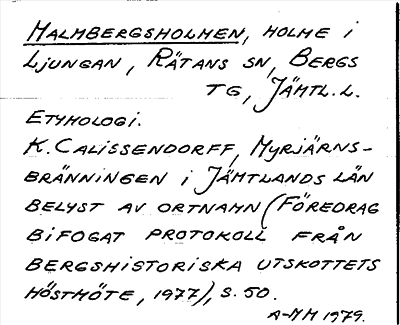 MALMBERGSHOLMEN, HOLME i
LJUNGAN, RÄTANS SN, BERGS
TG, JÄMTL.L.
ETYMOLOGi.
K. CALISSENDORFF, MYRJÄRNS-
BRÄNNINGEN i JÄMTLANDS LÄN
BELYST AV ORTNAMN (FÖREDRAG
BiFOGAT PROTOKOLL FRÅN
BERGSHISTORISKA UTSKOTTETS
HÖSTMÖTE, 1977), S. 50.
A-MM 1979.